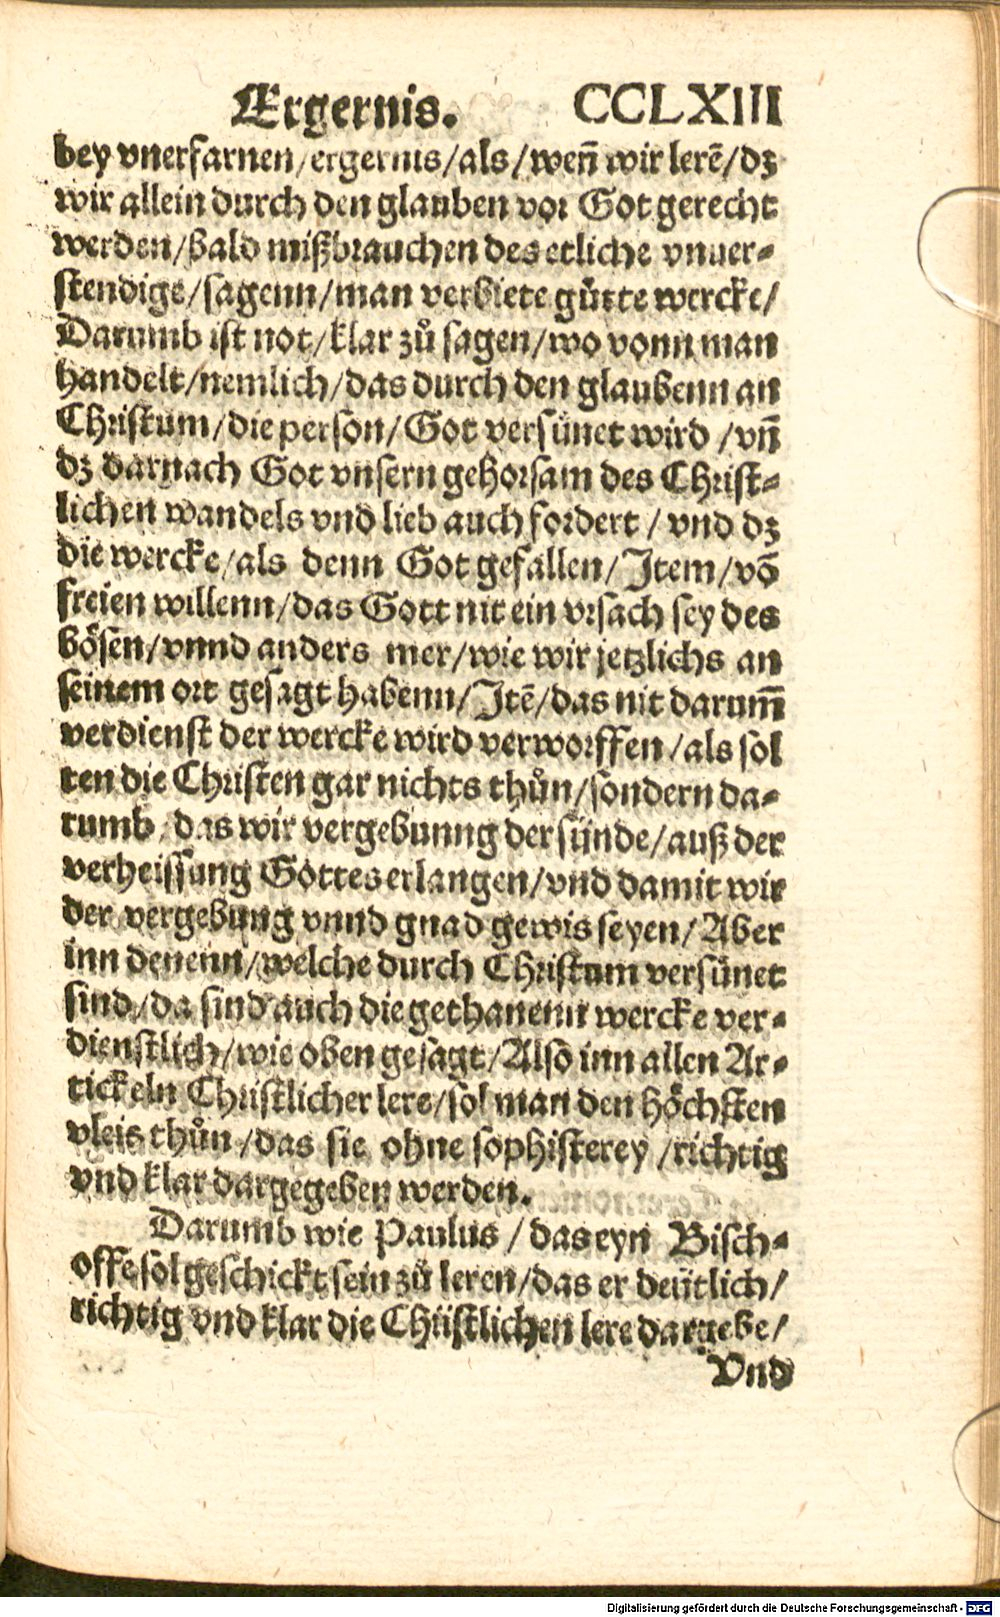 Ergernis. CCLXIIII
bey vnerfarnen/ergernis/als/weñ wir lerẽ/dz
wir allein durch den glauben vor Got gerecht
werden/Bald mißbrauchen des etliche vnuer-
stendige/sagenn/man verbiete gůtte wercke/
Darumb ist not/klar zů sagen/wo vonn man
handelt/nemlich/das durch den glaubenn an
Christum/die person/Got versünet wird/vñ
dz darnach Got vnsern gehorsam des Christ-
lichen wandels vnd lieb auch fordert/vnd dz
die wercke/als denn Got gefallen/Item/võ
freien willenn/das Gott nit ein vrsach sey des
bösen/vnnd anders mer/wie wir jetzlichs an
seinem ort gesagt habenn/Itẽ/das nit darum̃
verdienst der wercke wird verworffen/als sol
ten die Christen gar nichts thůn/sondern da-
rumb das wir vergebunng der sünde/auß der
verheissung Gottes erlangen/vnd damit wir
der vergebung vnnd gnad gewis seyen/Aber
inn denenn/welche durch Christum versünet
sind/da sind auch die gethanenn wercke ver-
dienstlich/wie oben gesagt/Also inn allen Ar-
tickeln Christlicher lere/sol man den höchsten
vleis thůn/das sie ohne sophisterey/richtig
vnd klar dargegeben werden.
Darumb wie Paulus/das eyn Bisch-
offe sol geschickt sein zů leren/das er deütlich/
richtig vnd klar die Christlichen lere dargebe/
Vnd
Digitalisierung gefördert durch die Deutsche Forschungsgemeinschaft - DFG